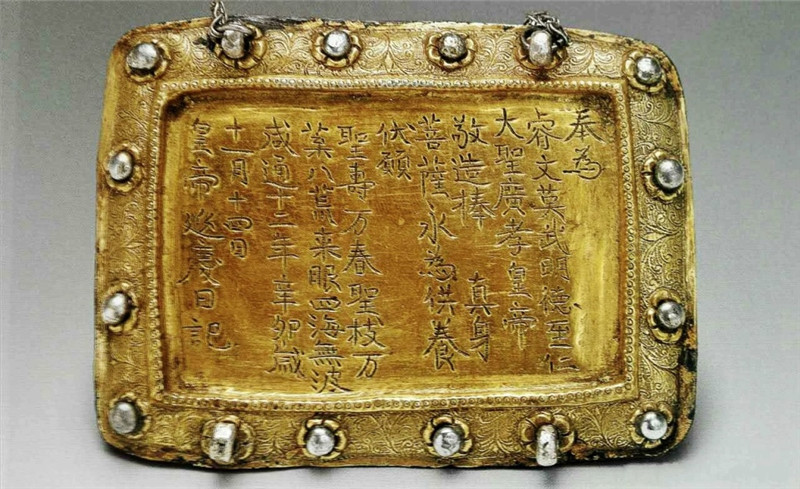 奉為
睿文英武明德至仁
大聖廣孝皇帝
敬造捧真身
菩薩永為供養
伏願
聖壽万春聖枝万
葉八荒来服四海無波
咸通十二年辛卯歲
十一月十四日
皇帝延慶日記